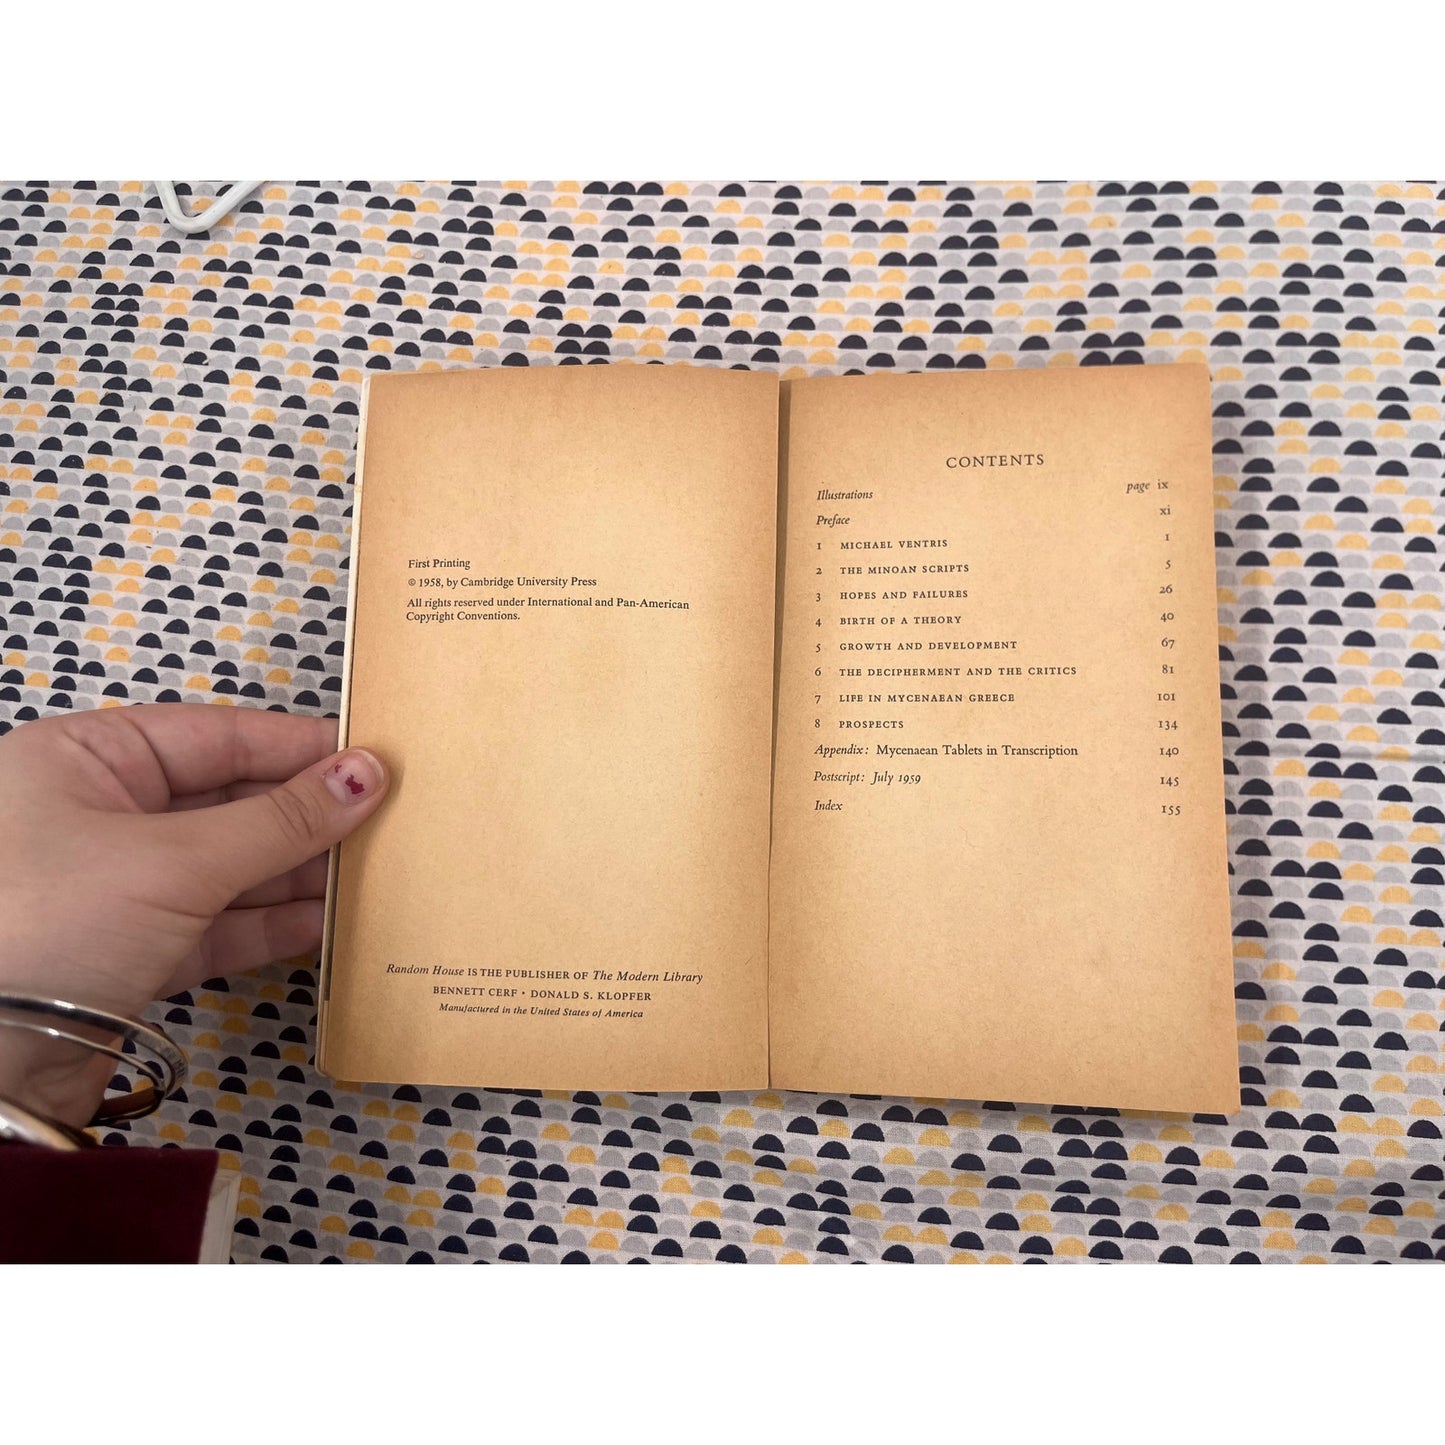 First Printing
© 1958, by Cambridge University Press
All rights reserved under International and Pan-American
Copyright Conventions.
Random House IS THE PUBLISHER OF The Modern Library
BENNETT CERF • DONALD S. KLOPFER
Manufactured in the United States of America
CONTENTS
Illustrations page ix
Preface xi
1 MICHAEL VENTRIS 1
2 THE MINOAN SCRIPTS 5
3 HOPES AND FAILURES 26
4 BIRTH OF A THEORY 40
5 GROWTH AND DEVELOPMENT 67
6 THE DECIPHERMENT AND THE CRITICS 81
7 LIFE IN MYCENAEAN GREECE 101
8 PROSPECTS 134
Appendix: Mycenaean Tablets in Transcription 140
Postscript: July 1959 145
Index 155